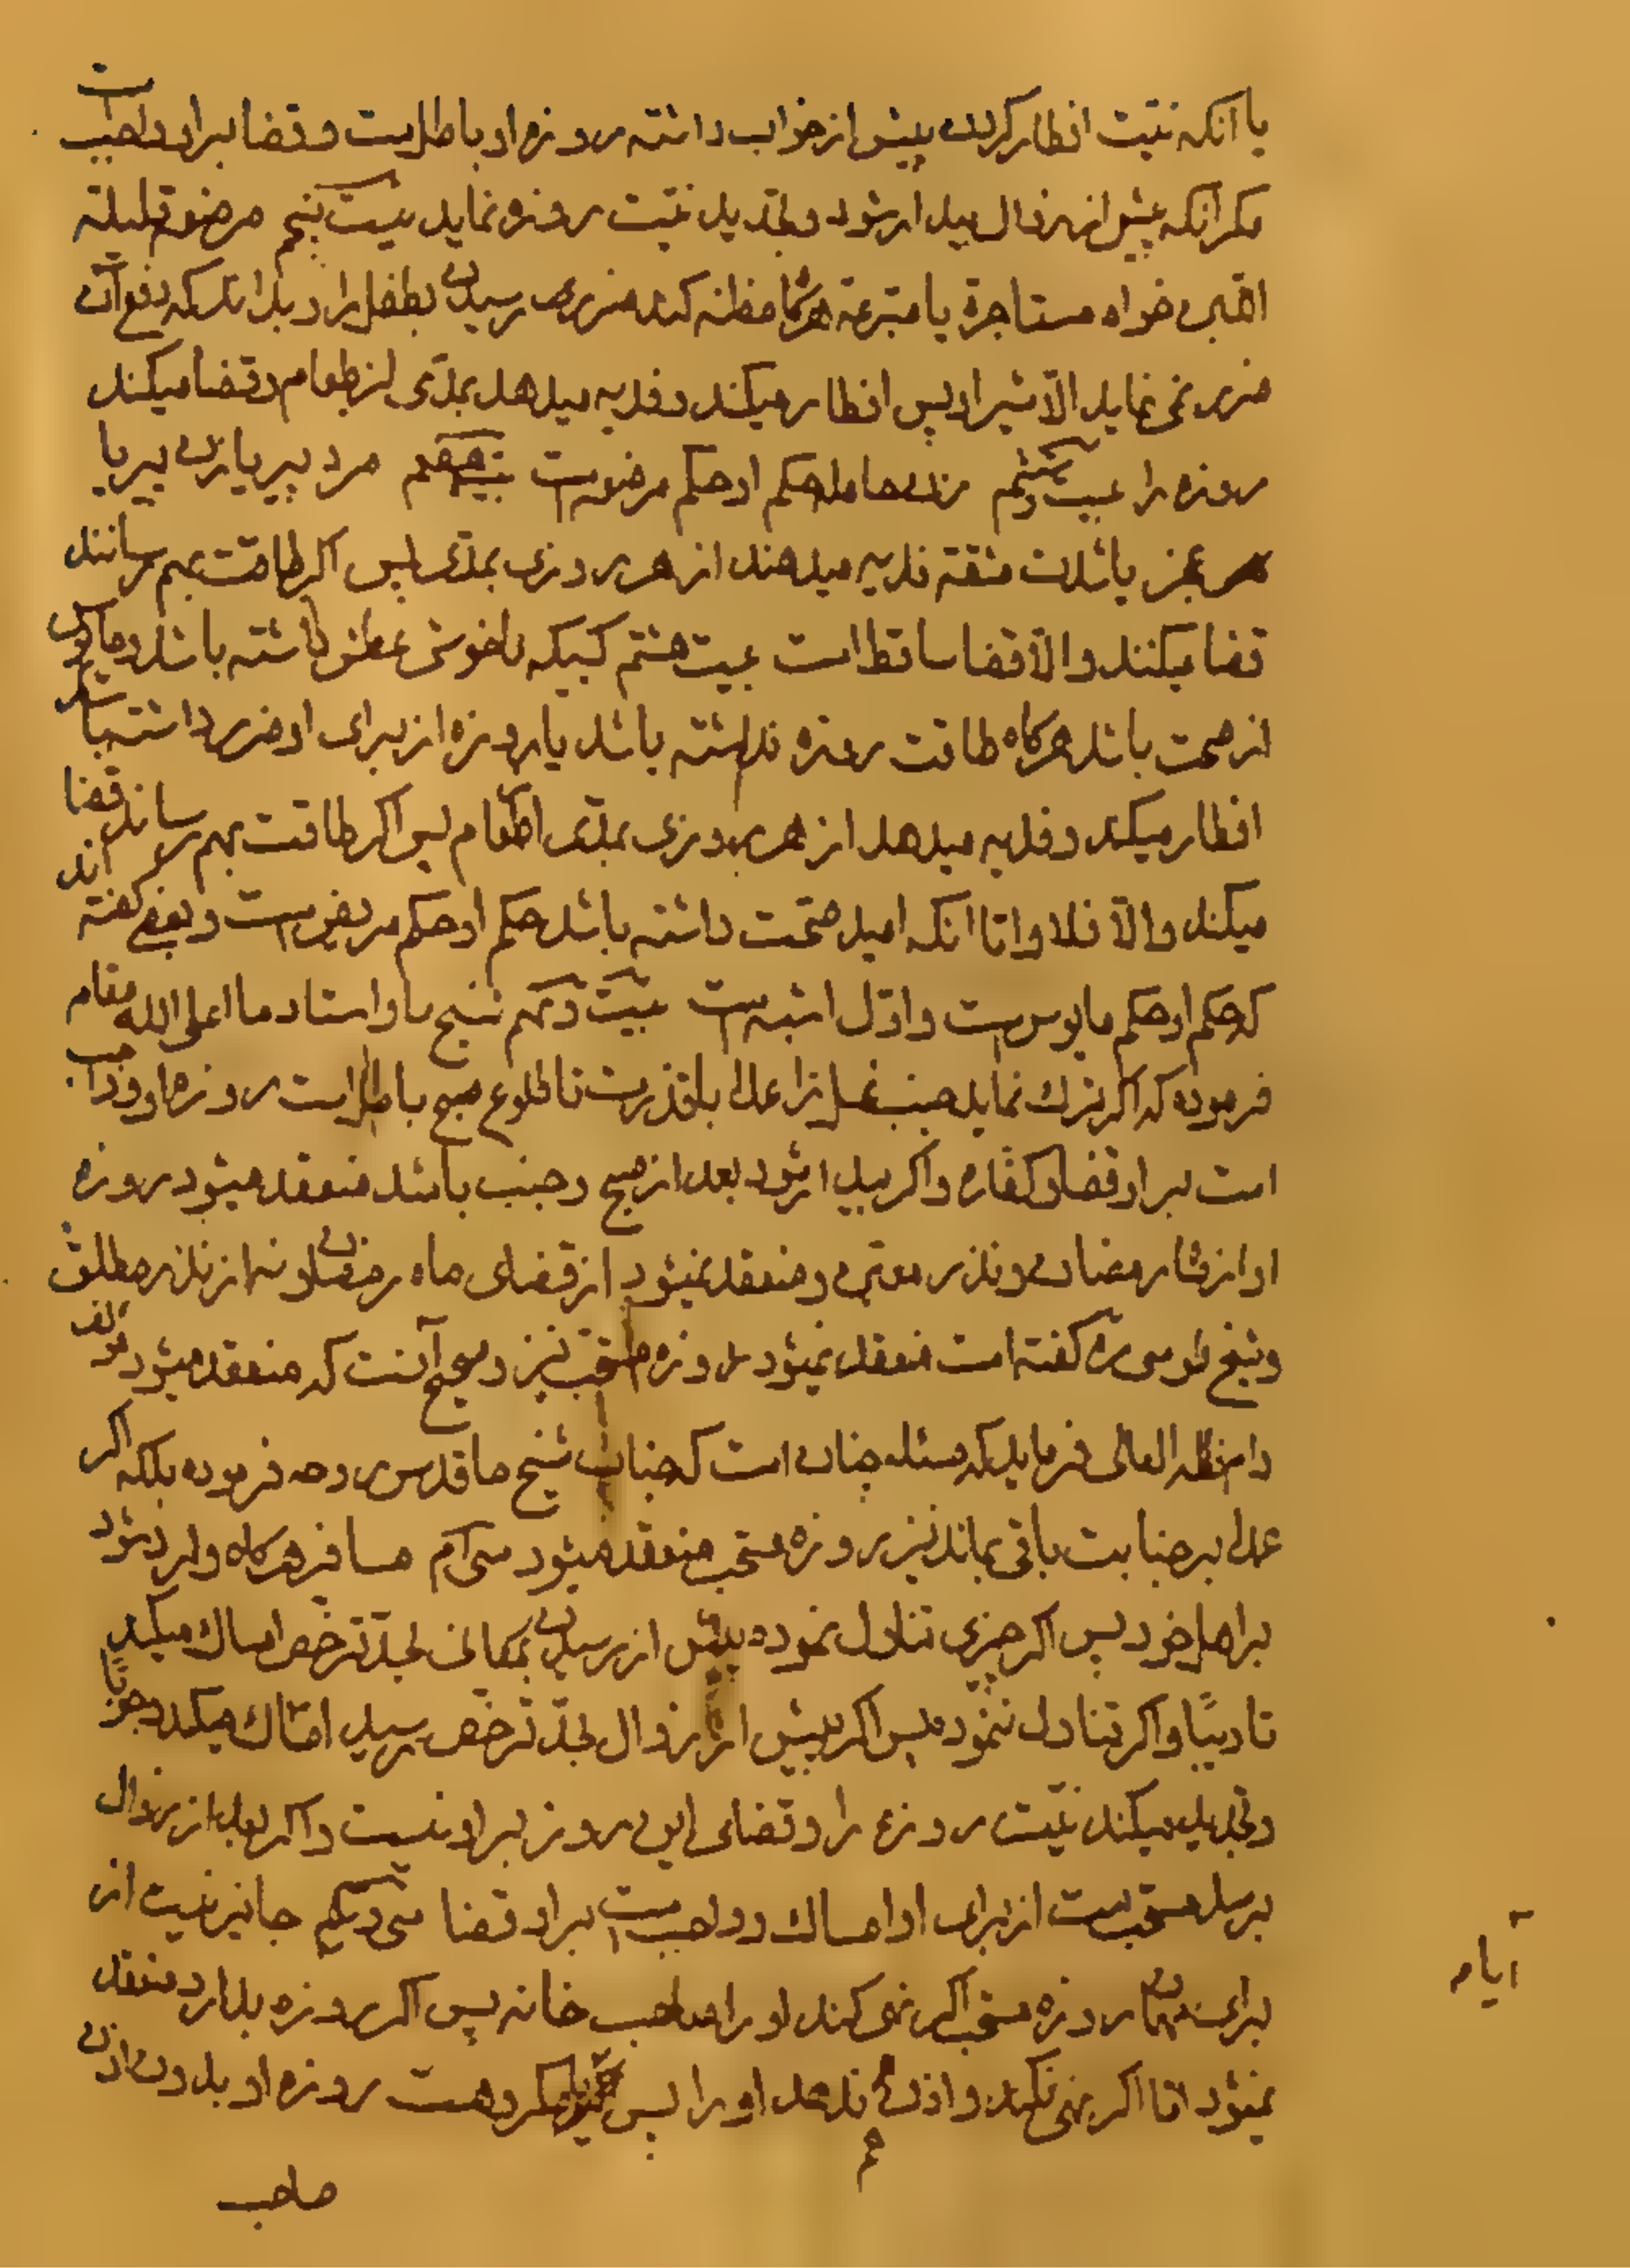 یا آنکه نیّت افطار کردن پیش از خواب داشته روزه او باطل است و قضا بر او واجب است
مکر آنکه پیش از زوال بیدار شود و تجدید نیّت روزه نماید بیست پنجم مرضعه قلیلة
اللبن خواه مستاجرة یا متبرعة هرکاه مظنه کند ضرر رسیدن بطفل را و بداند که دفع آن
ضرر نمی نماید الّا شیر او پس افطار میکند و فدیه میدهد بمدّی از طعام و قضا میکند
روزه را بیست و ششم زن حامله حکم او حکم مرضعه است بیست هفتم مرد پیر یا زن پیر با
عجز یا شدت مشقة فدیه میدهند از هر روزی بمدّی پس اکر طاقت بهم رسانند
قضا میکنند و الّا قضا ساقط است بیست هشتم کسیکه ناخوشی عطش داشته باشد و مایوس
از صحت باشد هرکاه طاقت روزه نداشته باشد یا روزه از برای او ضرر داشته باشد
افطار میکند و فدیه میدهد از هر روزی بمدّی از طعام پس اکر طاقت بهم رساند قضا
میکند و الّا فلا و امّا آنکه امید صحّت داشته باشد حکم او حکم مریض است و بعضی کفته اند
که حکم او حکم مایوس است و اوّل اشبه است بیست و نهم شیخ ما و استاد ما اعلی الله مقامه
فرموده که اکر ترک نماید جنب غسل را عمدا بلا عذر تا طلوع صبح باطل است روزه او و واجب
است بر او قضا و کفّاره و اکر بیدار شود بعد از صبح و جنب باشد منعقد میشود روزه
او از رمضان و نذر معیّن و منعقد نمیشود از قضای ماه رمضان و نه از نذر مطلق
و شیخ طوسی ره کفته است منعقد نمیشود روزه مستحب نیز و صحیح آنست که منعقد میشود مؤلف
دام ظله العالی فرماید که مسئله چنان است که جناب شیخ ما قدس روحه فرموده بلکه اکر
عمدا بر جنابت باقی بماند نیز روزه مستحب منعقد میشود سی ام مسافر هرکاه وارد شود
بر اهل خود پس اکر چیزی تناول نموده پیش از رسیدن بمکانی بحدّ ترخص امساک میکند
تادیبًا و اکر تناول ننموده پس اکر پیش از زوال بحدّ ترخص رسید امساک میکند وجوبًا
و تجدید میکند نیّت روزه را و قضای این روز بر او نیست و اکر بعد از زوال
برسد مستحب است از برای او امساک و واجب است بر او قضا سی و یکم جایز نیست از
برای مهمان روزه مستحب اکر نهی کند او را صاحب خانه پس اکر روزه بدارد منعقد
نمیشود امّا اکر نهی نکند و اذن هم ندهد او را پس مکروه است روزه او بدون اذن
صاحب